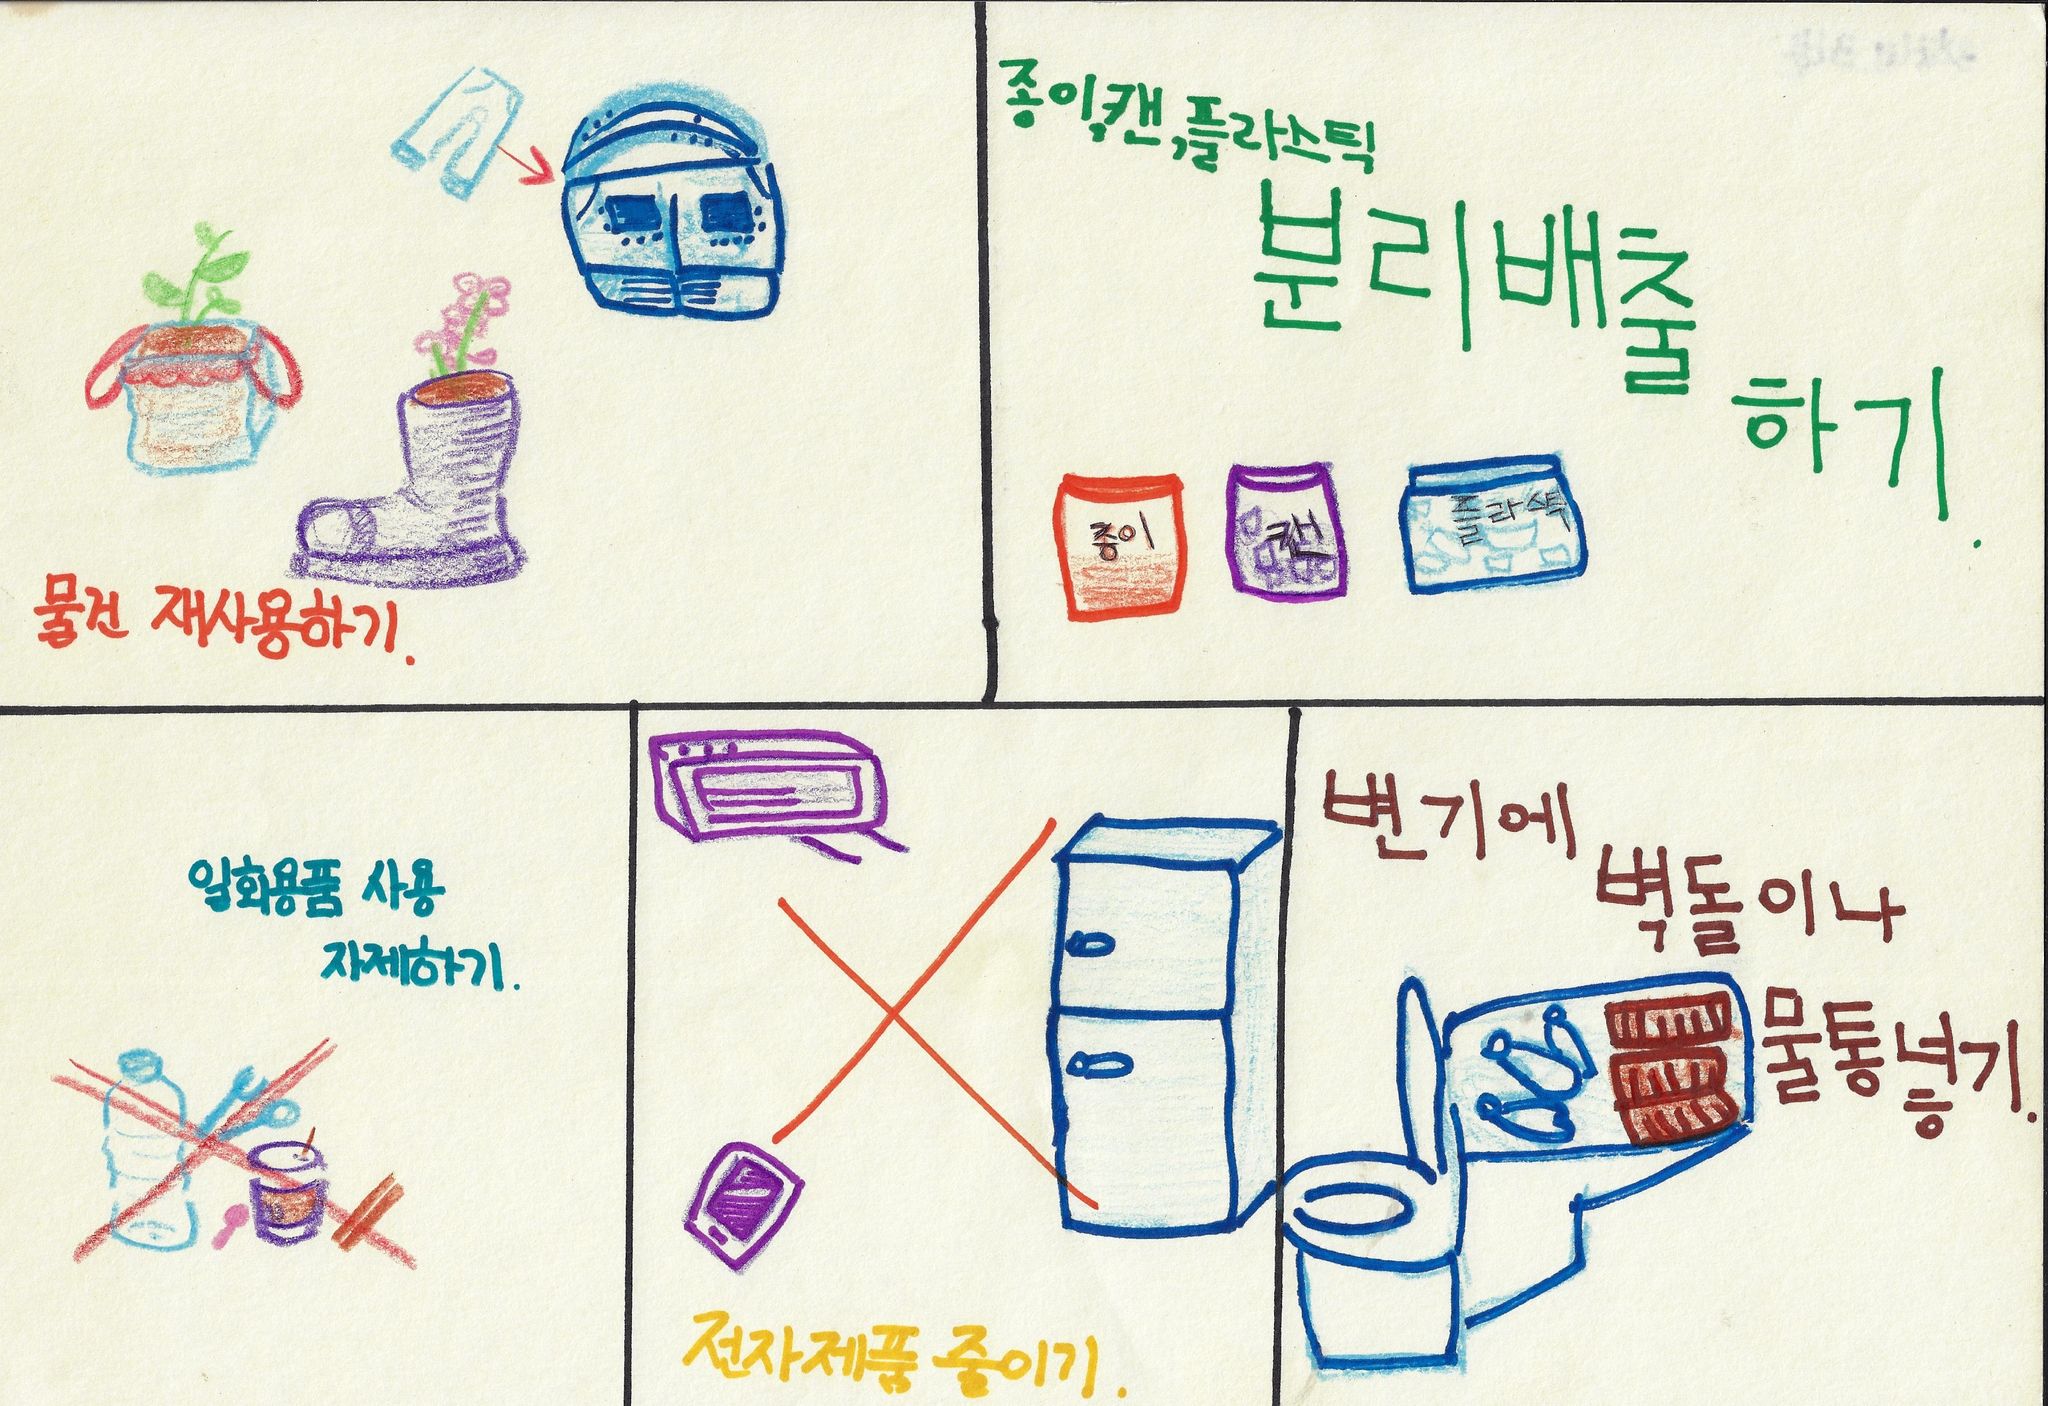 물건 재사용하기.
종이,캔,플라스틱
분리배출
하기.
종이
캔
플라스틱
일회용품 사용
자제하기.
전자제품 줄이기.
변기에
벽돌이나
물통 넣기.